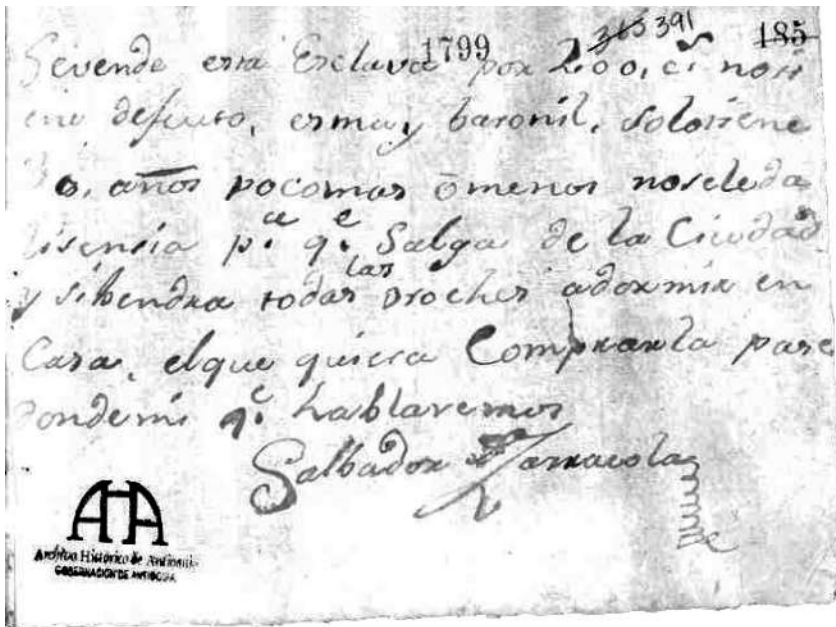 1799 315 391 185
Sevende esta Esclava por 200, c.s noti
ene defecto, es muy baronil, solotiene
años pocomas ō menos noseleda
lisensia p.a q.e Salga de la Ciudad
y sibendra todas las noches adormir en
Casa, elque quiera Comprarla pase
dondemi q.e hablaremos
Salbador
AHA
Archivo Histórico de Antioquia
GOBERNACIÓN DE ANTIOQUIA